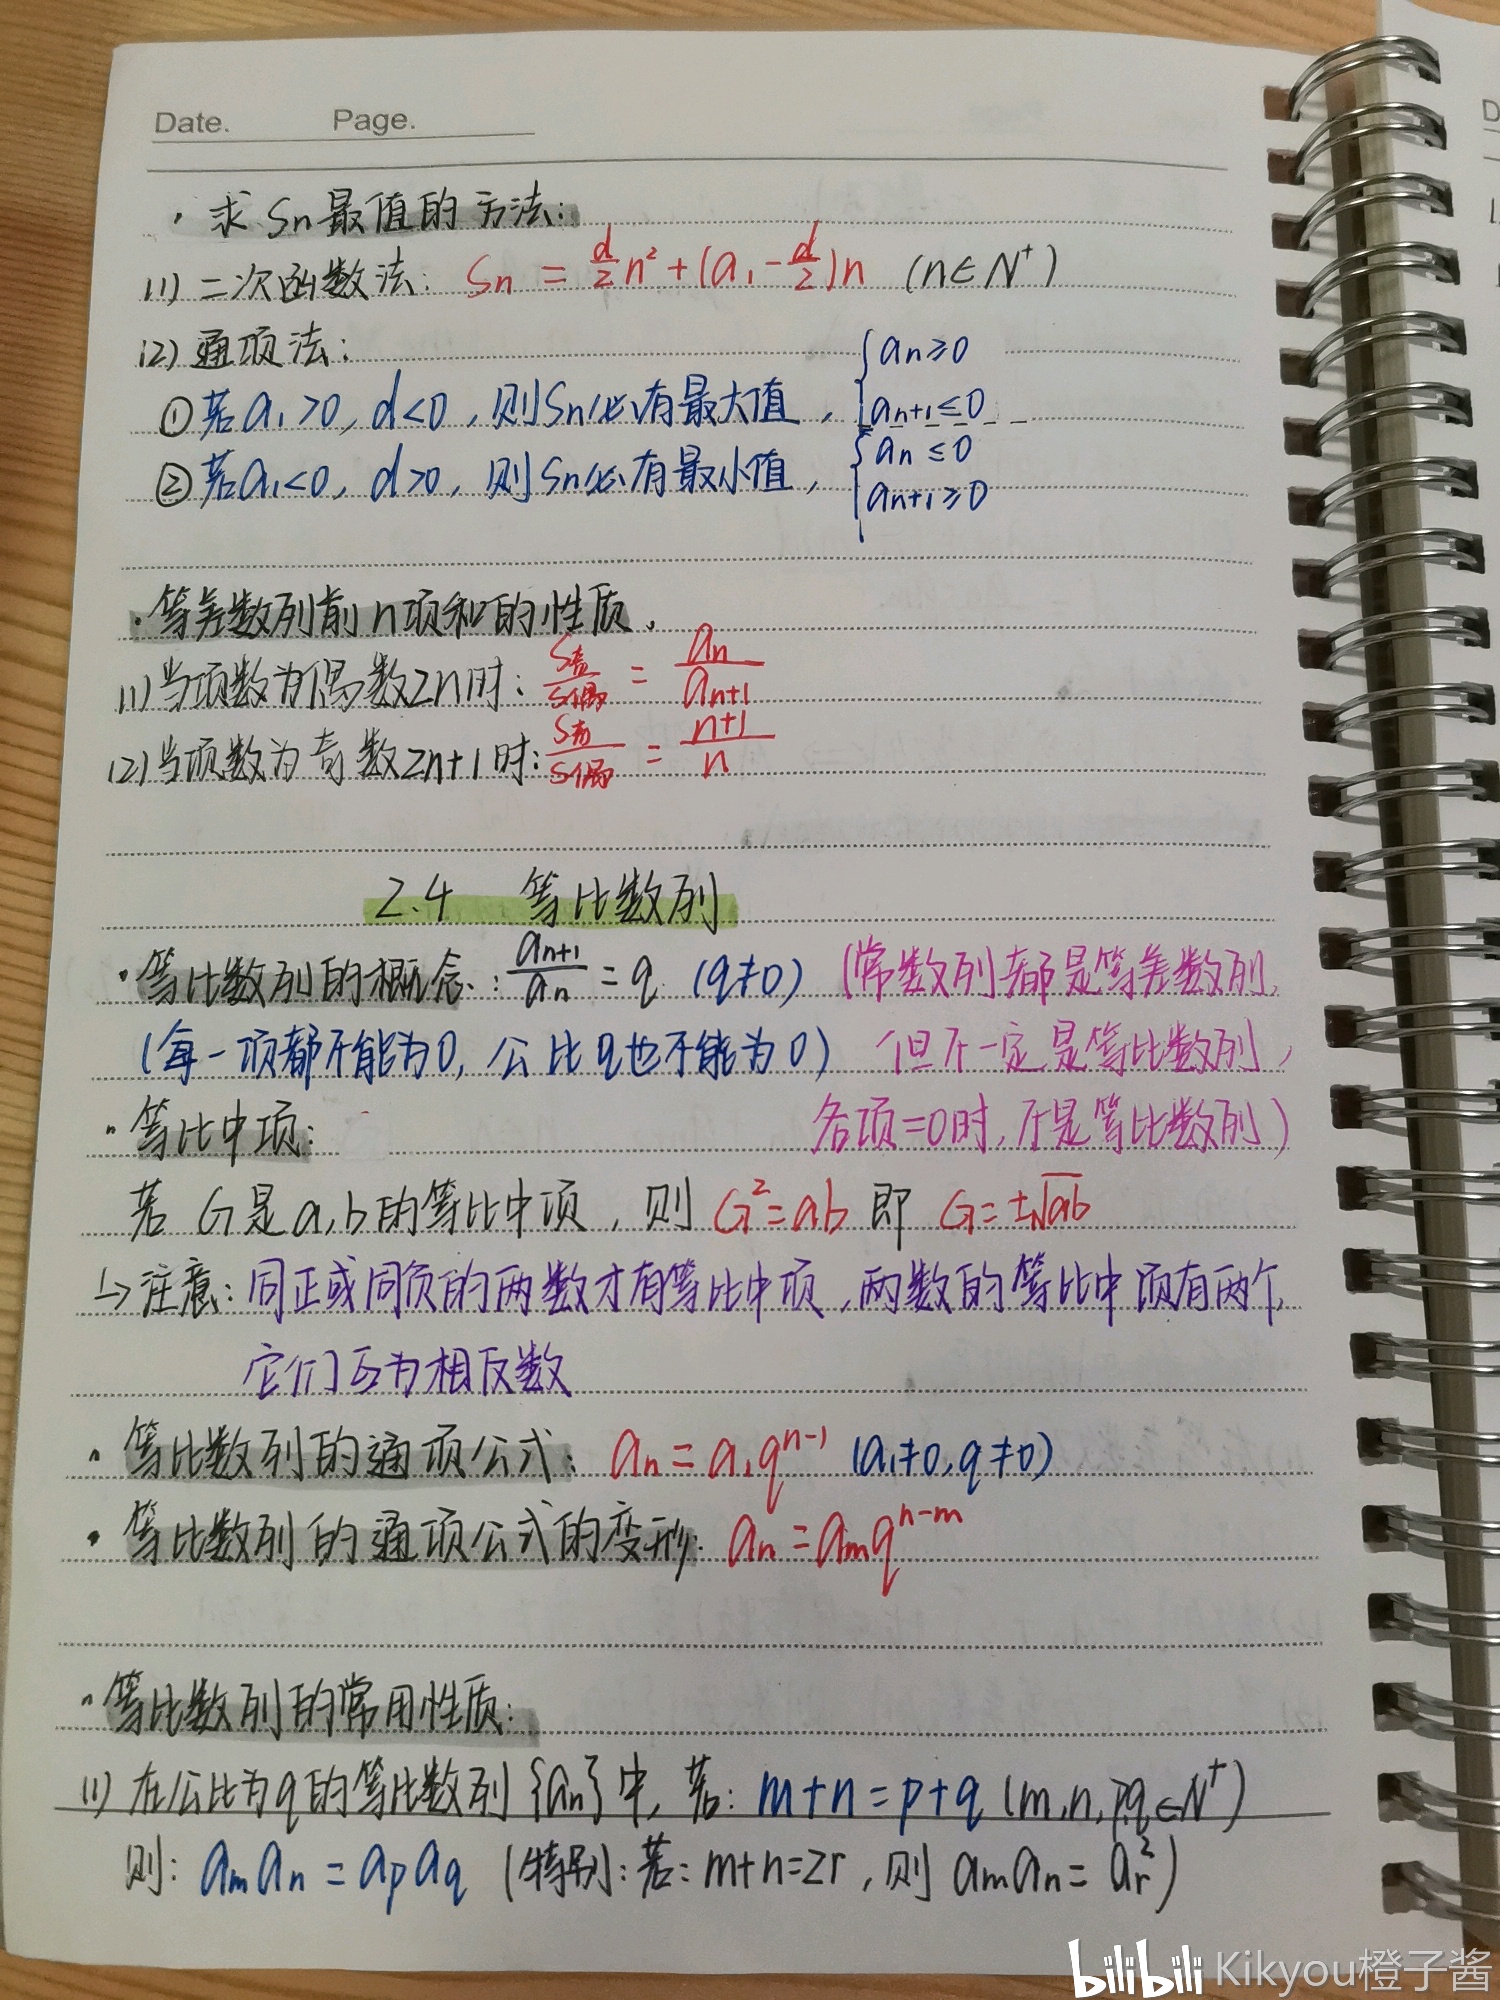 Date. Page.
· 求Sn最值的方法:
(1) 二次函数法: Sn = d/2 n² + (a₁ - d/2)n (n∈N⁺)
(2) 通项法:
①若a₁>0, d<0, 则Sn必有最大值, { an≥0
an+1≤0
②若a₁<0, d>0, 则Sn必有最小值, { an≤0
an+1≥0
· 等差数列前n项和的性质.
(1) 当项数为偶数2n时: S奇/S偶 = an/an+1
(2) 当项数为奇数2n+1时: S奇/S偶 = n+1/n
2.4 等比数列
· 等比数列的概念: an+1/an = q (q≠0) (常数列都是等差数列,
(每一项都不能为0, 公比q也不能为0) 但不一定是等比数列,
· 等比中项: 各项=0时, 不是等比数列)
若G是a,b的等比中项, 则 G²=ab 即 G=±√ab
↳注意: 同正或同负的两数才有等比中项, 两数的等比中项有两个,
它们互为相反数
· 等比数列的通项公式: an = a₁qⁿ⁻¹ (a₁≠0, q≠0)
· 等比数列的通项公式的变形: an = amqⁿ⁻ᵐ
· 等比数列的常用性质:
(1) 在公比为q的等比数列{an}中, 若: m+n=p+q (m,n,p,q∈N⁺)
则: aman = apaq (特别: 若: m+n=2r, 则 aman = ar²)
bilibili Kikyou橙子酱